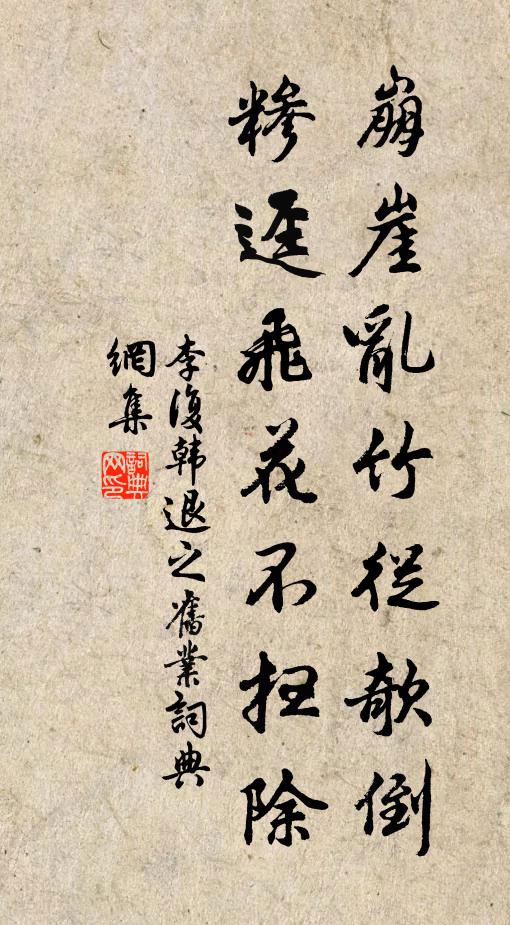 崩崖亂竹從欹倒
糝逕飛花不扫除
李復韩退之舊業詞典
網集
詞典
网印